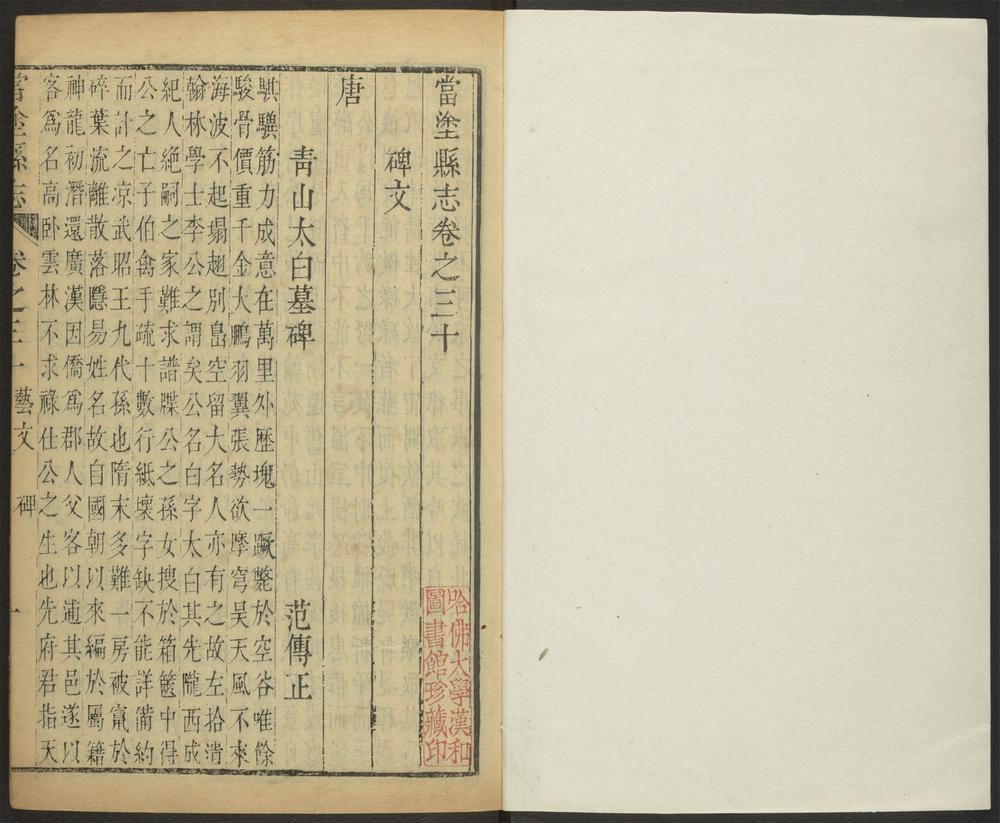 當塗縣志卷之三十
碑文
唐
青山太白墓碑 范傳正
騏驥筋力成意在萬里外歷塊一蹶斃於空谷唯餘
駿骨價重千金大鵬羽翼張勢欲摩穹昊天風不來
海波不起塌翅別島空留大名人亦有之故左拾遺
翰林學士李公之謂矣公名白字太白其先隴西成
紀人絕嗣之家難求譜牒公之孫女搜於箱篋中得
公之亡子伯禽手疏十數行紙壞字缺不能詳備約
而計之凉武昭王九代孫也隋末多難一房被竄於
碎葉流離散落隱易姓名故自國朝以來編於屬籍
神龍初潛還廣漢因僑爲郡人父客以逋其邑遂以
客爲名高卧雲林不求祿仕公之生也先府君指天
當塗縣志 卷之三十 藝文 碑 一
哈佛大學漢和
圖書館珍藏印